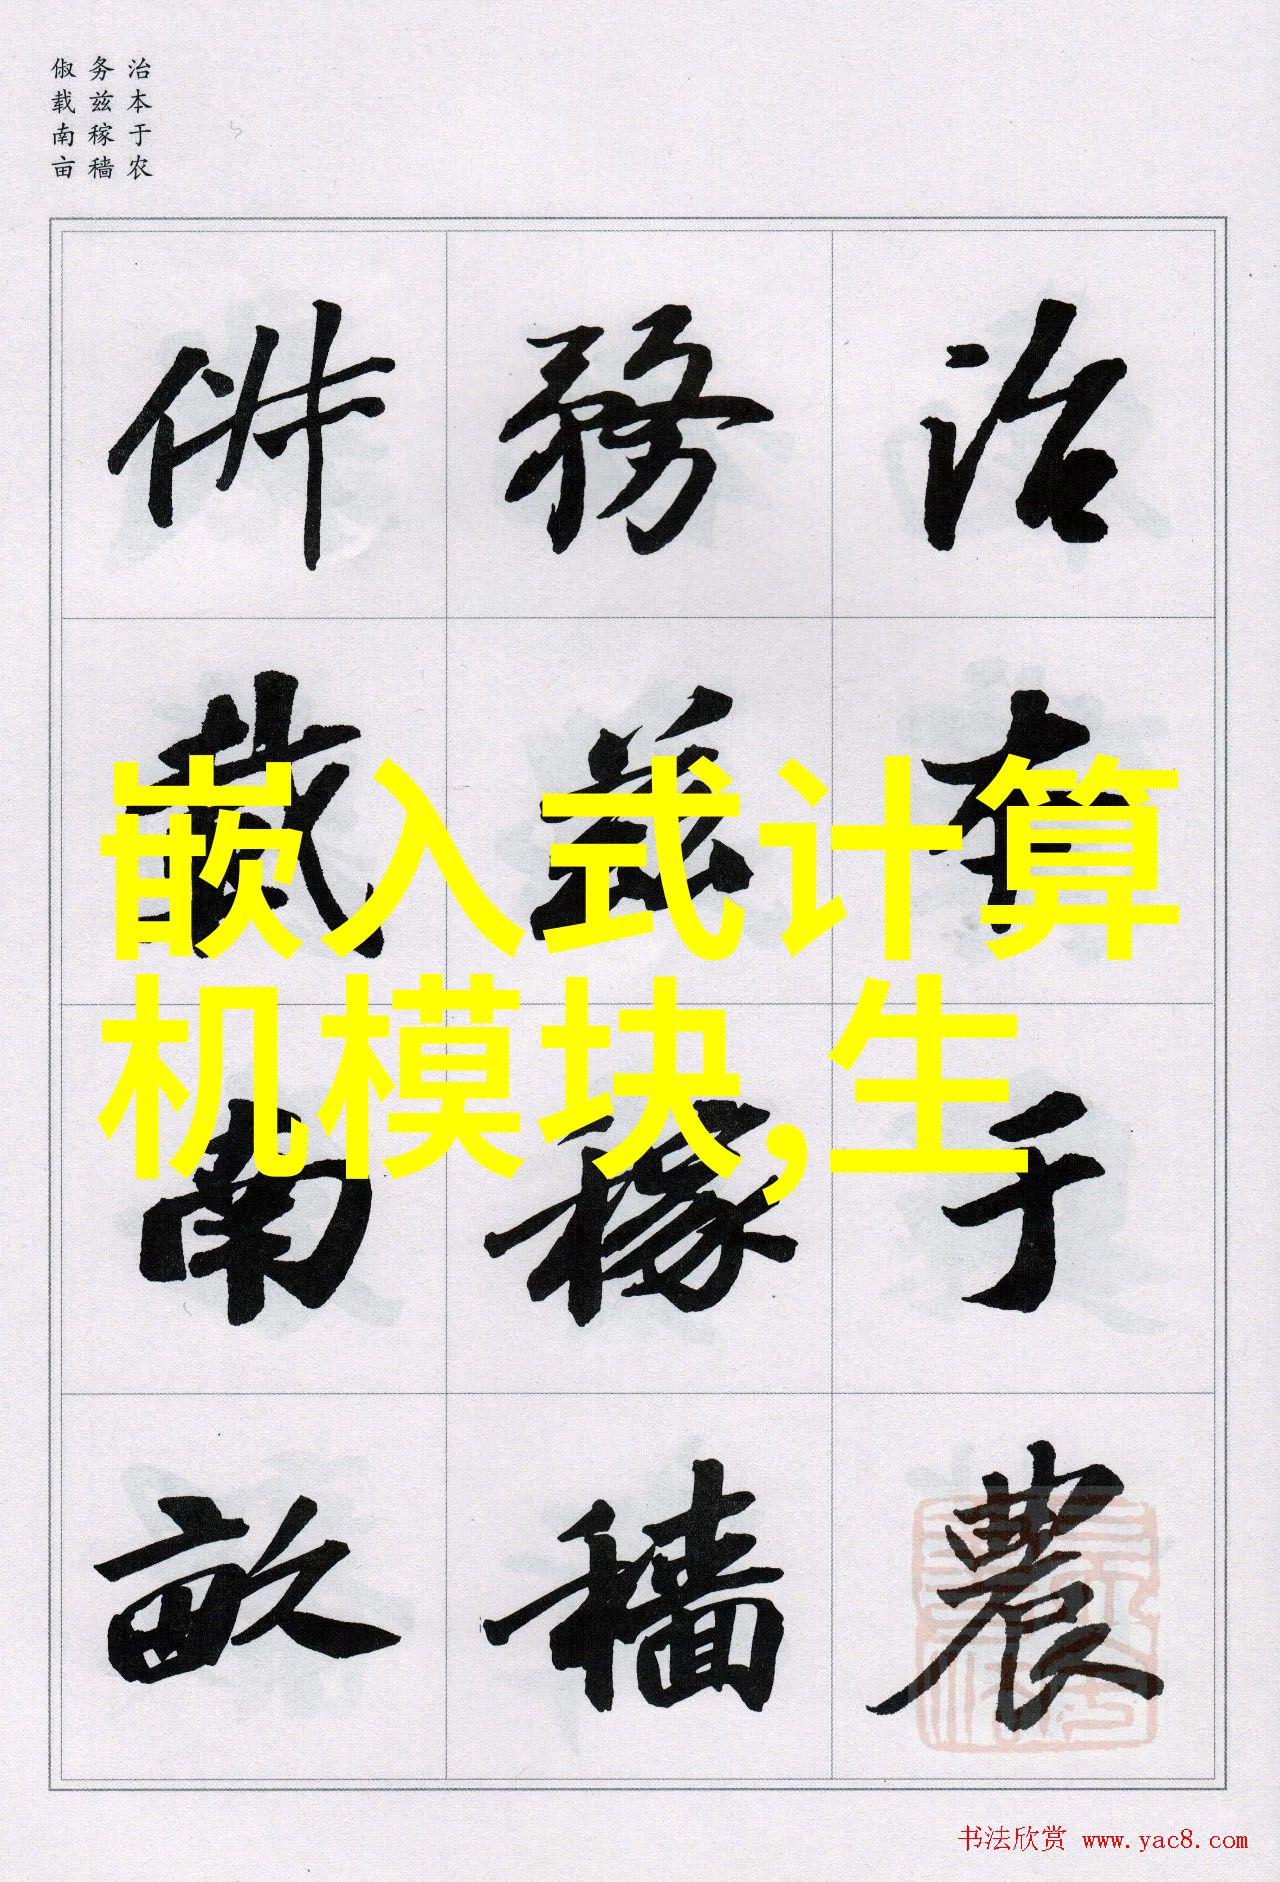 治本于农
务兹稼穑
俶载南亩
治本于農
務茲稼穡
俶載南畝
嵌入式计算
机模块,生
书法欣赏 www.yac8.com